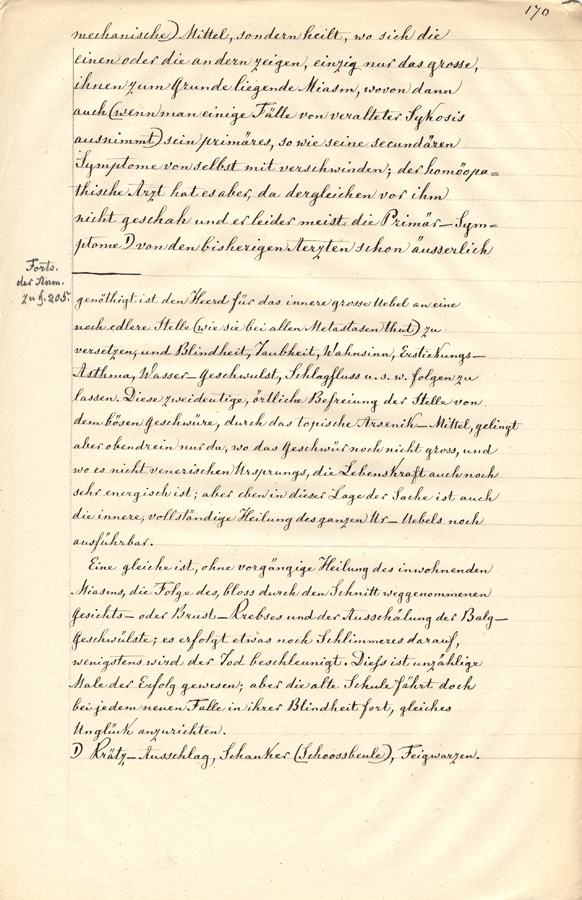 170
mechanische) Mittel, sondern heilt, wo sich die
einen oder die andern zeigen, einzig nur das grosse,
ihnen zum Grunde liegende Miasm, wovon dann
auch (wenn man einige Fälle von veralteter Sykosis
ausnimmt) sein primäres, so wie seine secundären
Symptome von selbst mit verschwinden; der homöopa=
thische Arzt hat es aber, da dergleichen vor ihm
nicht geschah und er leider meist die Primär-Sym-
ptome 1) von den bisherigen Aerzten schon äusserlich
Forts.
der Anm.
zu §. 205.
genöthigt ist den Heerd für das innere grosse Uebel an eine
noch edlere Stelle (wie sie bei allen Metastasen thut) zu
versetzen, und Blindheit, Taubheit, Wahnsinn, Erstickungs-
Asthma, Wasser-Geschwulst, Schlagfluss u. s. w. folgen zu
lassen. Diese zweideutige, örtliche Befreiung der Stelle von
dem bösen Geschwüre, durch das topische Arsenik-Mittel, gelingt
aber obendrein nur da, wo das Geschwür noch nicht gross, und
wo es nicht venerischen Ursprungs, die Lebenskraft auch noch
sehr energisch ist; aber eben in dieser Lage der Sache ist auch
die innere, vollständige Heilung des ganzen Ur-Uebels noch
ausführbar.
Eine gleiche ist, ohne vorgängige Heilung des inwohnenden
Miasms, die Folge des, bloss durch den Schnitt weggenommenen
Gesichts- oder Brust-Krebses und der Ausschälung der Balg-
Geschwülste; es erfolgt etwas noch Schlimmeres darauf,
wenigstens wird der Tod beschleunigt. Diefs ist unzählige
Male der Erfolg gewesen; aber die alte Schule fährt doch
bei jedem neuen Falle in ihrer Blindheit fort, gleiches
Unglück anzurichten.
1) Krätz-Ausschlag, Schanker (Schoossbeule), Feigwarzen.